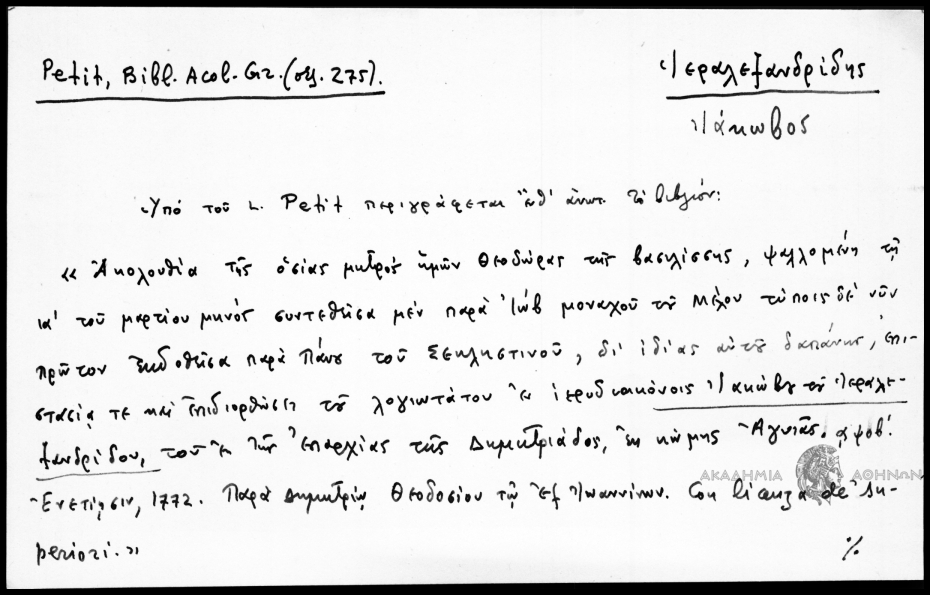 Petit, Bibl. Acol. Gr. (σελ. 275).
Ἱεραλεξανδρίδης
Ἰάκωβος
Ὑπό τοῦ L. Petit περιγράφεται ἔνθ' ἀνωτ. τό βιβλίον:
« Ἀκολουθία τῆς ὁσίας μητρός ἡμῶν Θεοδώρας τῆς βασιλίσσης, ψαλλομένη τῇ
ια' τοῦ μαρτίου μηνός συντεθεῖσα μέν παρὰ Ἰώβ μοναχοῦ τοῦ Μέλου τύποις δέ νῦν
πρῶτον ἐκδοθεῖσα παρὰ Πάνου τοῦ Σεκληστινοῦ, δι' ἰδίας αὐτοῦ δαπάνης, ἐπι-
στασίᾳ τε καί ἐπιδιορθώσει τοῦ λογιωτάτου ἐν ἱεροδιακόνοις Ἰακώβου τοῦ Ἱεραλε-
ξανδρίδου, τοῦ ἐκ τῆς ἐπαρχίας τῆς Δημητριάδος, ἐκ κώμης Ἀγυιᾶς. αψοβ'.
Ἐνετίῃσιν, 1772. Παρὰ Δημητρίῳ Θεοδοσίου τῷ ἐξ Ἰωαννίνων. Con licenza de' Su-
periori. »
%
ΑΚΑΔΗΜΙΑ ΑΘΗΝΩΝ